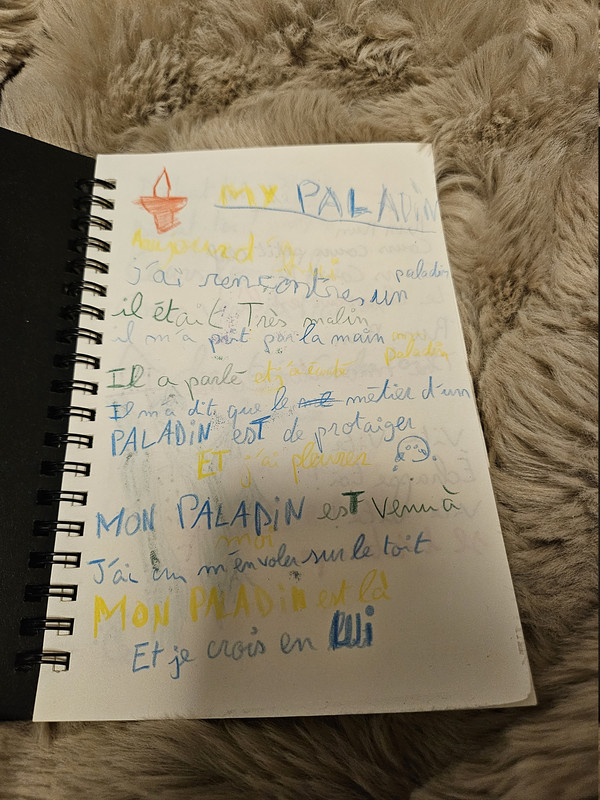 MY PALADIN
Aujourd'hui
j'ai rencontres un paladin
il était Très malin
il m'a prit par la main mon paladin
Il a parlé et j'ai écouté
Il m'a dit que le métier d'un
PALADiN esT de protaiger
ET j'ai pleurer
MON PALADiN esT venu à
moi
J'ai cru m'envoler sur le toit
MON PALADiN est là
Et je crois en lui